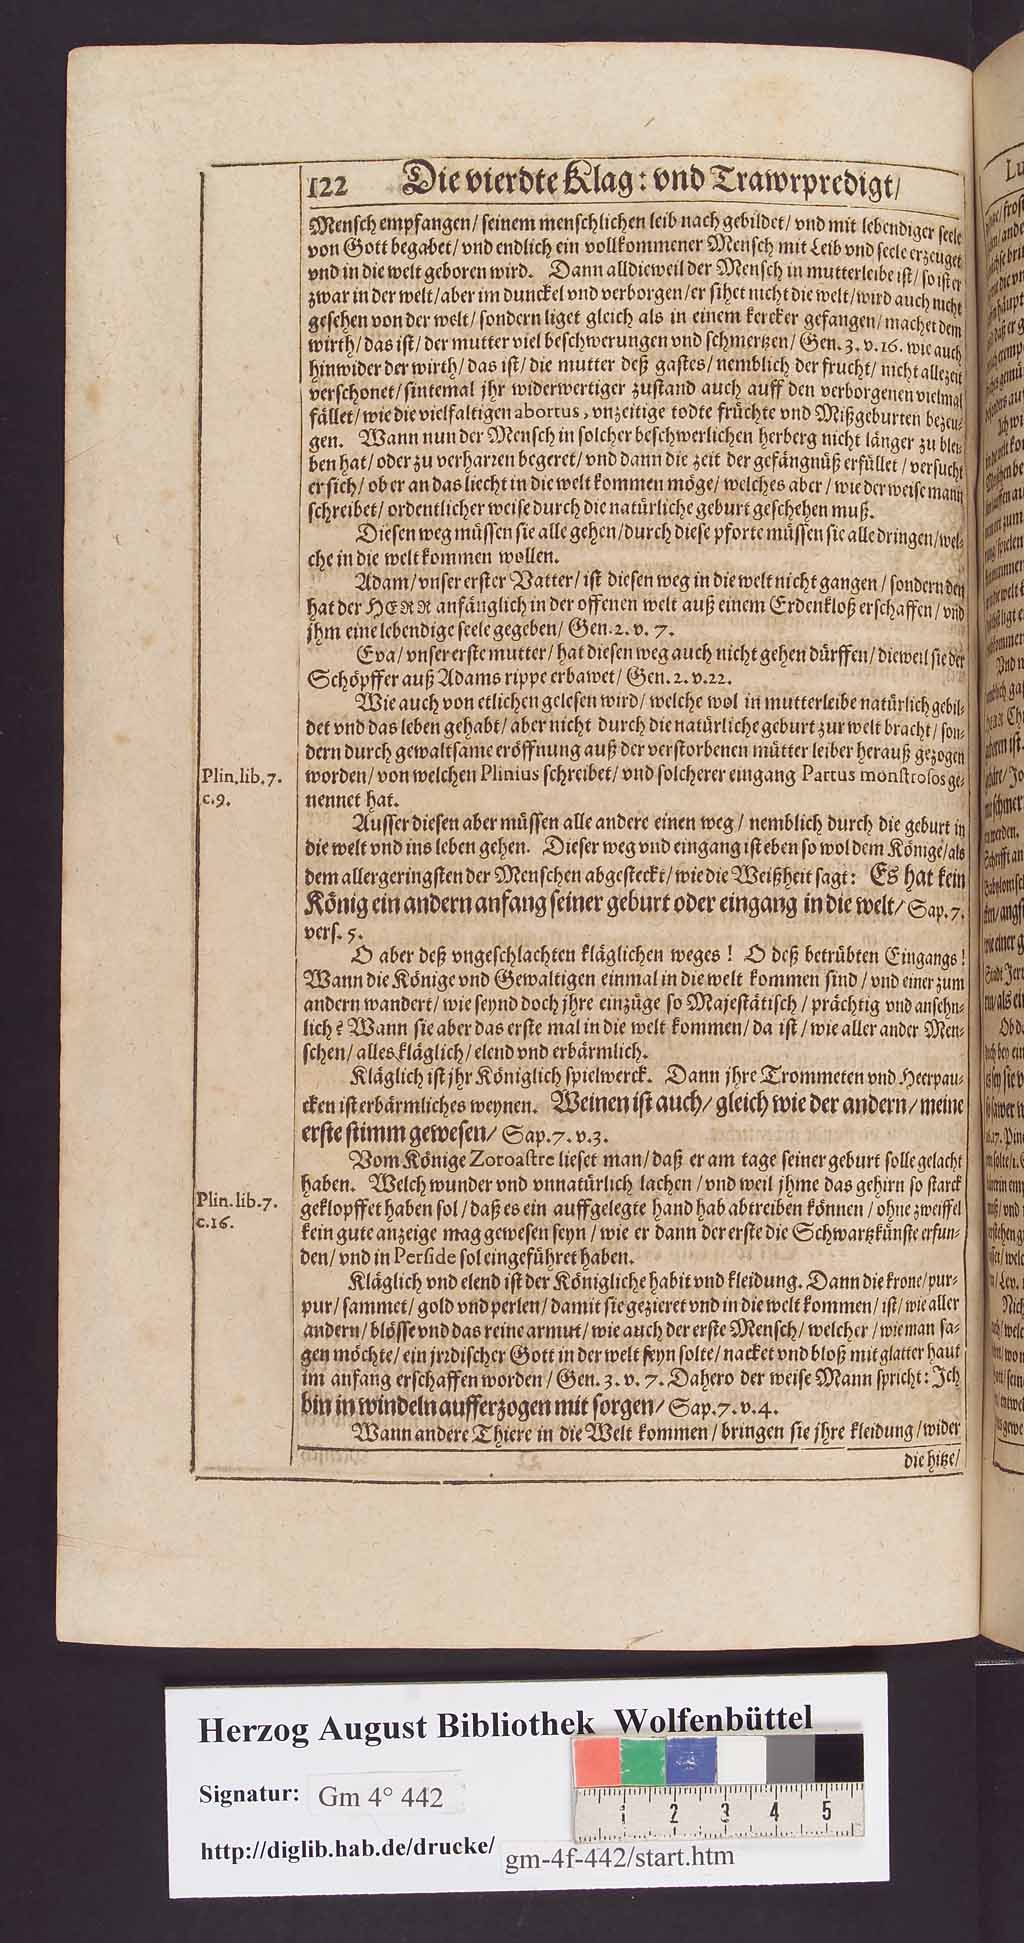 122 Die vierdte Klag: vnd Trawrpredigt/
Mensch empfangen/ seinem menschlichen leib nach gebildet/ vnd mit lebendiger seele
von Gott begabet/ vnd endlich ein vollkommener Mensch mit Leib vnd seele erzeuget
vnd in die welt geboren wird. Dann alldieweil der Mensch in mutterleibe ist/ so ist er
zwar in der welt/ aber im dunckel vnd verborgen/ er sihet nicht die welt/ wird auch nicht
gesehen von der welt/ sondern liget gleich als in einem kercker gefangen/ machet dem
wirth/ das ist/ der mutter viel beschwerungen vnd schmertzen/ Gen. 3. v. 16. wie auch
hinwider der wirth/ das ist/ die mutter deß gastes/ nemblich der frucht/ nicht allezeit
verschonet/ sintemal jhr widerwertiger zustand auch auff den verborgenen vielmal
fället/ wie die vielfaltigen abortus, vnzeitige todte früchte vnd Mißgeburten bezeu-
gen. Wann nun der Mensch in solcher beschwerlichen herberg nicht länger zu blei-
ben hat/ oder zu verharren begeret/ vnd dann die zeit der gefängnüß erfüllet/ versucht
er sich/ ob er an das liecht in die welt kommen möge/ welches aber/ wie der weise mann
schreibet/ ordentlicher weise durch die natürliche geburt geschehen muß.
Diesen weg müssen sie alle gehen/ durch diese pforte müssen sie alle dringen/ wel-
che in die welt kommen wollen.
Adam/ vnser erster Vatter/ ist diesen weg in die welt nicht gangen/ sondern den
hat der HERR anfänglich in der offenen welt auß einem Erdenkloß erschaffen/ vnd
jhm eine lebendige seele gegeben/ Gen. 2. v. 7.
Eva/ vnser erste mutter/ hat diesen weg auch nicht gehen dürffen/ dieweil sie der
Schöpffer auß Adams rippe erbawet/ Gen. 2. v. 22.
Wie auch von etlichen gelesen wird/ welche wol in mutterleibe natürlich gebil-
det vnd das leben gehabt/ aber nicht durch die natürliche geburt zur welt bracht/ son-
dern durch gewaltsame eröffnung auß der verstorbenen mütter leiber herauß gezogen
Plin. lib. 7.
c. 9.
worden/ von welchen Plinius schreibet/ vnd solcherer eingang Partus monstrosos ge-
nennet hat.
Ausser diesen aber müssen alle andere einen weg/ nemblich durch die geburt in
die welt vnd ins leben gehen. Dieser weg vnd eingang ist eben so wol dem Könige/ als
dem allergeringsten der Menschen abgesteckt/ wie die Weißheit sagt: Es hat kein
König ein andern anfang seiner geburt oder eingang in die welt/ Sap. 7.
vers. 5.
O aber deß vngeschlachten kläglichen weges! O deß betrübten Eingangs!
Wann die Könige vnd Gewaltigen einmal in die welt kommen sind/ vnd einer zum
andern wandert/ wie seynd doch jhre einzüge so Majestätisch/ prächtig vnd ansehn-
lich? Wann sie aber das erste mal in die welt kommen/ da ist/ wie aller ander Men-
schen/ alles kläglich/ elend vnd erbärmlich.
Kläglich ist jhr Königlich spielwerck. Dann jhre Trommeten vnd Heerpau-
cken ist erbärmliches weynen. Weinen ist auch/ gleich wie der andern/ meine
erste stimm gewesen/ Sap. 7. v. 3.
Vom Könige Zoroastre lieset man/ daß er am tage seiner geburt solle gelacht
haben. Welch wunder vnd vnnatürlich lachen/ vnd weil jhme das gehirn so starck
Plin. lib. 7.
c. 16.
geklopffet haben sol/ daß es ein auffgelegte hand hab abtreiben können/ ohne zweiffel
kein gute anzeige mag gewesen seyn/ wie er dann der erste die Schwartzkünste erfun-
den/ vnd in Perside sol eingeführet haben.
Kläglich vnd elend ist der Königliche habit vnd kleidung. Dann die krone/ pur-
pur/ sammet/ gold vnd perlen/ damit sie gezieret vnd in die welt kommen/ ist/ wie aller
andern/ blösse vnd das reine armut/ wie auch der erste Mensch/ welcher/ wie man sa-
gen möchte/ ein jrrdischer Gott in der welt seyn solte/ nacket vnd bloß mit glatter haut
im anfang erschaffen worden/ Gen. 3. v. 7. Dahero der weise Mann spricht: Ich
bin in windeln aufferzogen mit sorgen/ Sap. 7. v. 4.
Wann andere Thiere in die Welt kommen/ bringen sie jhre kleidung/ wider
die hitze/
Herzog August Bibliothek Wolfenbüttel
Signatur: Gm 4° 442
http://diglib.hab.de/drucke/ gm-4f-442/start.htm
1 2 3 4 5